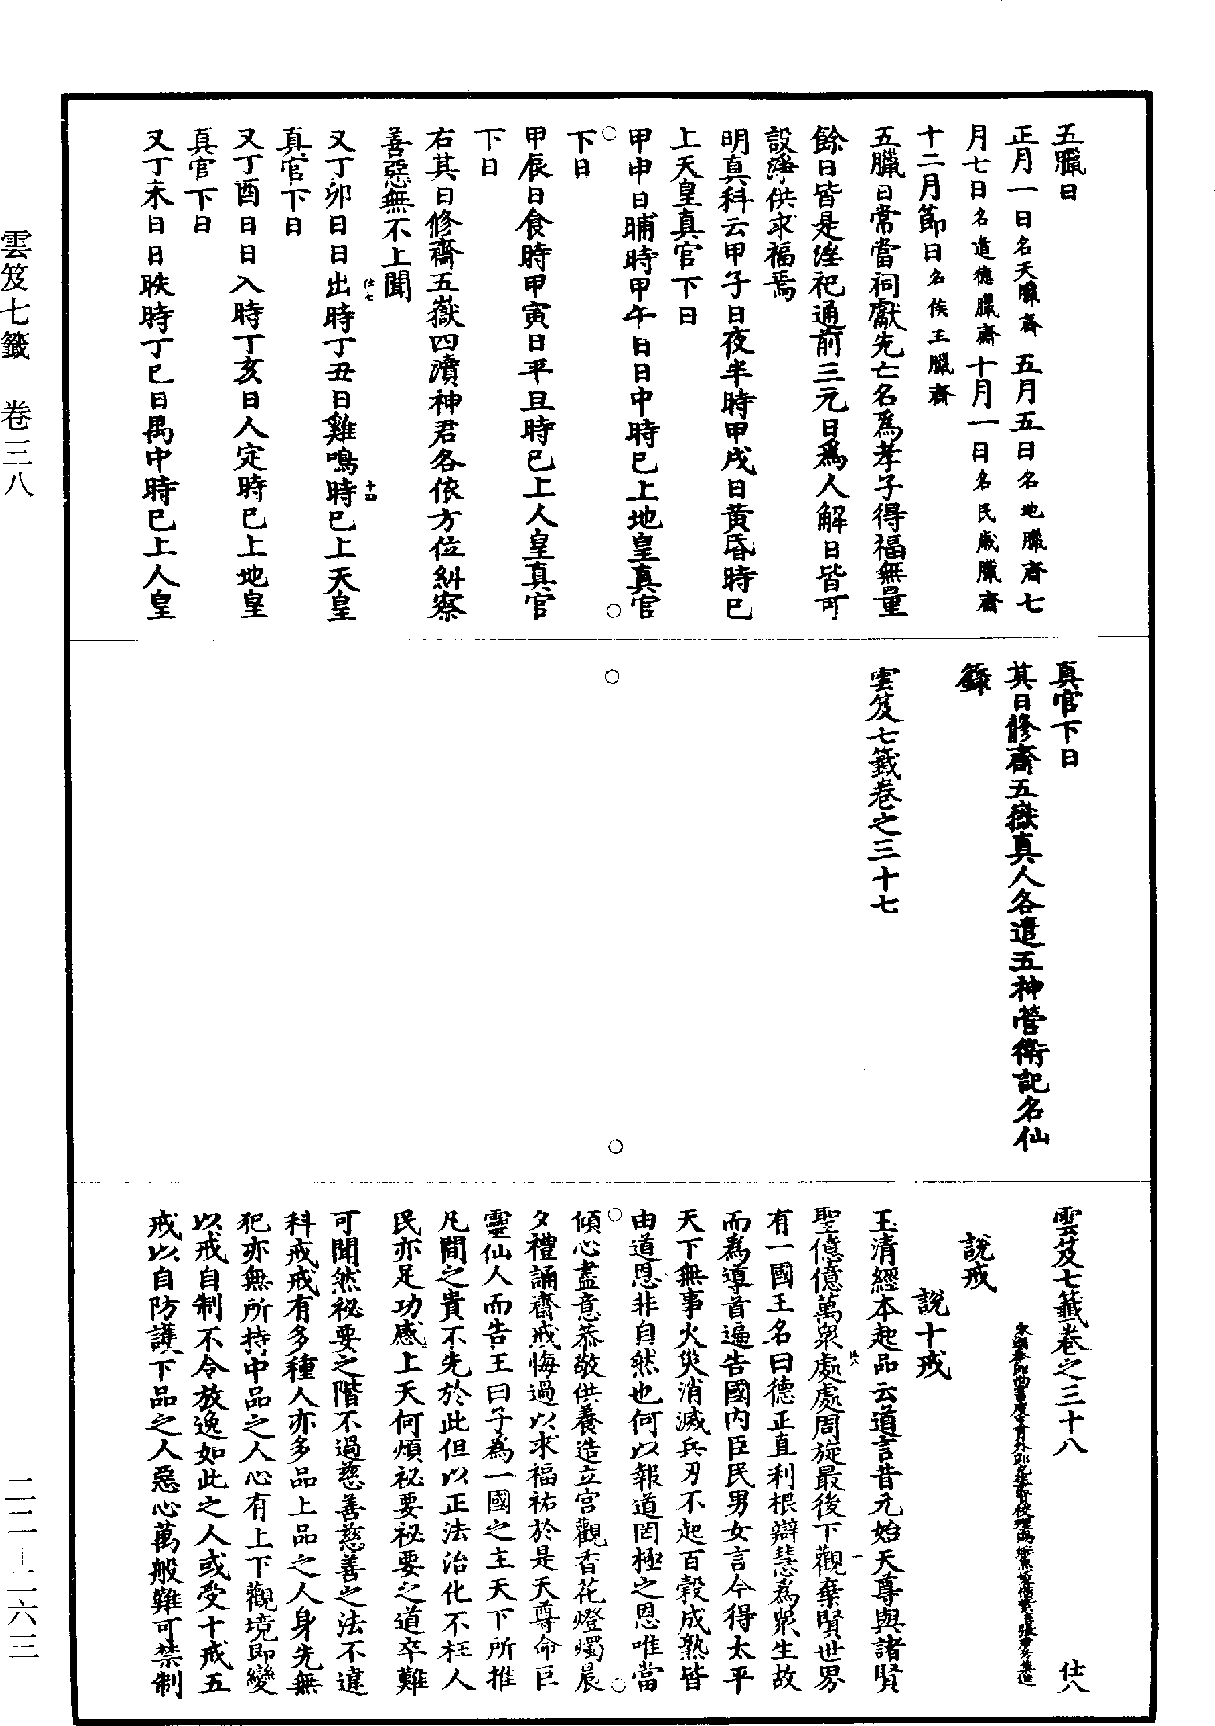 五臘日
正月一日名天臘齋五月五日名地臘齋七
月七日名道德臘齋十月一日名民歲臘齋
十二月節日名侯王臘齋
五臘日常當祠獻先亡名為孝子得福無量
餘日皆是淫祀通前三元日為人解日皆可
設淨供求福焉
明真科云甲子日夜半時甲戌日黃昏時已
上天皇真官下日
甲申日晡時甲午日日中時已上地皇真官
下日
甲辰日食時甲寅日平旦時已上人皇真官
下日
右其日修齋五嶽四瀆神君各依方位糾察
善惡無不上聞
仕七
十四
又丁卯日日出時丁丑日雞鳴時已上天皇
真官下日
又丁酉日日入時丁亥日人定時已上地皇
真官下日
又丁未日日昳時丁巳日禺中時已上人皇
真官下日
其日修齋五嶽真人各遣五神營衛記名仙
籙
雲笈七籤卷之三十七
雲笈七籤卷之三十八
仕八
說戒
說十戒
玉清經本起品云道言昔元始天尊與諸賢
聖億億萬眾處處周旋最後下觀棄賢世界
有一國王名曰德正直利根辯慧為眾生故
而為導首遍告國內臣民男女言今得太平
天下無事火災消滅兵刃不起百穀成熟皆
由道恩非自然也何以報道罔極之恩唯當
傾心盡意恭敬供養造立宮觀香花燈燭晨
夕禮誦齋戒悔過以求福祐於是天尊命巨
靈仙人而告王曰子為一國之主天下所推
凡間之貴不先於此但以正法治化不枉人
民亦足功感上天何煩祕要祕要之道卒難
可聞然祕要之階不過慈善慈善之法不違
科戒戒有多種人亦多品上品之人身先無
犯亦無所持中品之人心有上下觀境即變
以戒自制不令放逸如此之人或受十戒五
戒以自防護下品之人惡心萬般難可禁制
雲笈七籤 卷三八
二二-二六三